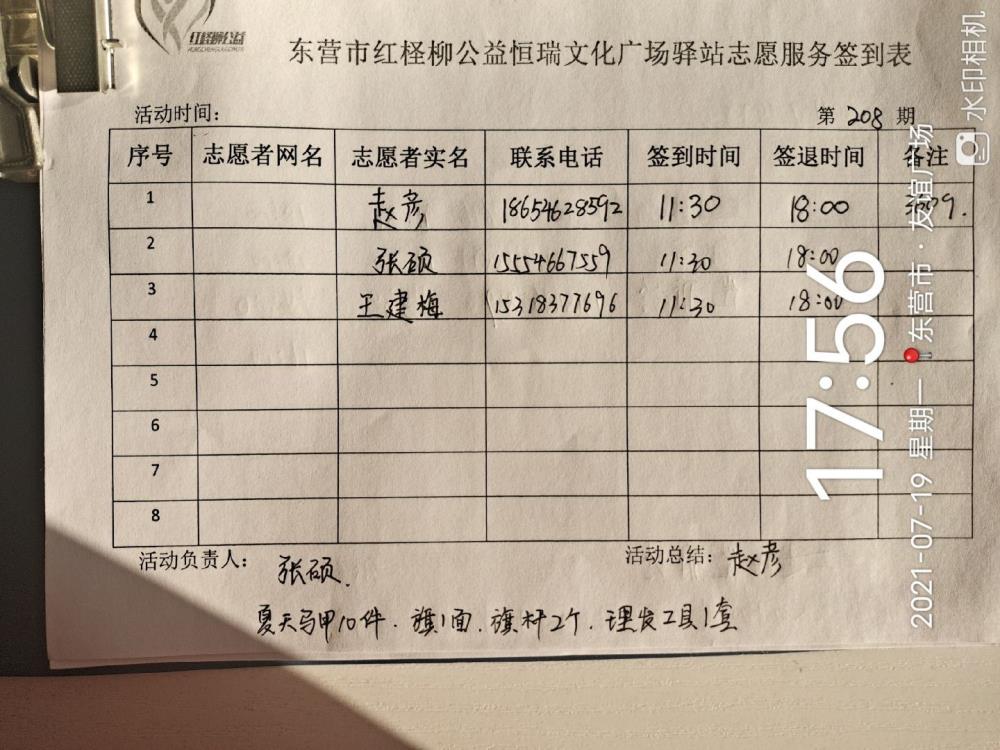 红柽柳公益
东营市红柽柳公益恒瑞文化广场驿站志愿服务签到表
活动时间: 第 208 期
序号 志愿者网名 志愿者实名 联系电话 签到时间 签退时间 备注
1 赵彦 18654628592 11:30 18:00
2 张硕 15554667559 11:30 18:00
3 王建梅 15318377696 11:30 18:00
4
5
6
7
8
活动负责人: 张硕. 活动总结: 赵彦
夏天马甲10件. 旗1面. 旗杆2个. 理发工具1套
17:56
2021-07-19 星期一 东营市·友谊广场
水印相机